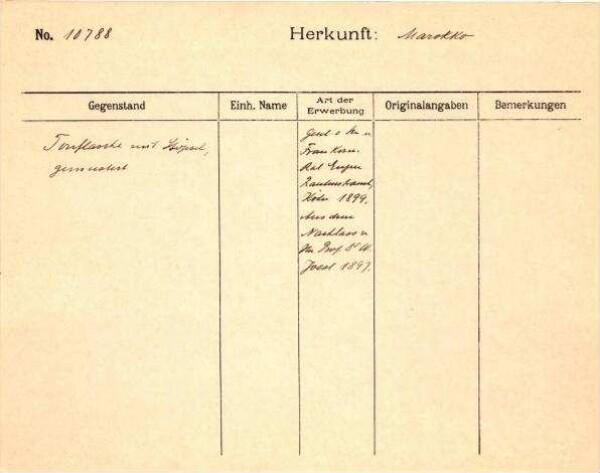 No. 10788 Herkunft: Marokko
Gegenstand Einh. Name Art der Erwerbung Originalangaben Bemerkungen
Tonflasche mit Stöpsel,
gemustert
Gesch. v. Hr u
Frau Kom.
Rat Eugen
Rautenstrauch,
Köln 1899.
Aus dem
Nachlass v.
Hr. Prof. Dr W.
Joest 1897.